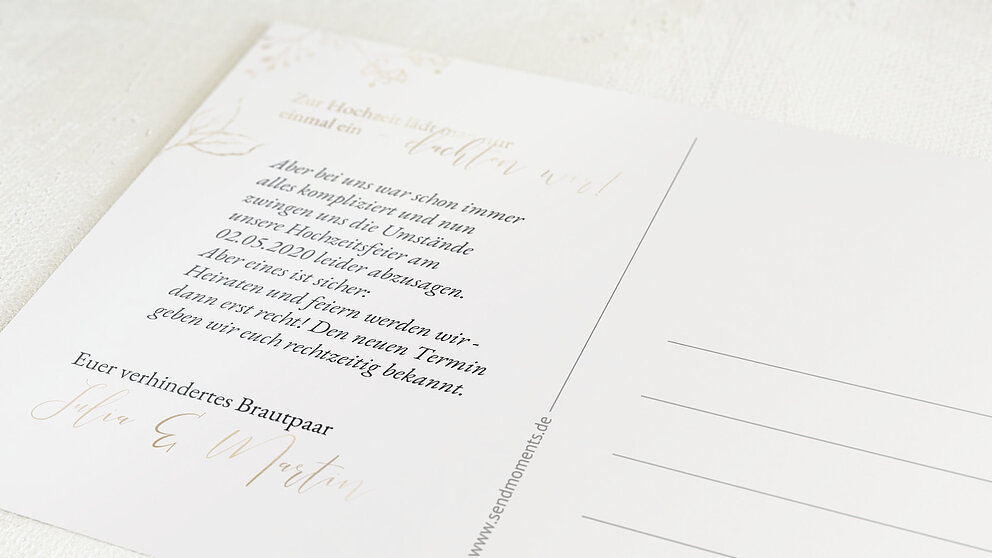 Zur Hochzeit lädt man nur
einmal ein - dachten wir!
Aber bei uns war schon immer
alles kompliziert und nun
zwingen uns die Umstände
unsere Hochzeitsfeier am
02.05.2020 leider abzusagen.
Aber eines ist sicher:
Heiraten und feiern werden wir -
dann erst recht! Den neuen Termin
geben wir euch rechtzeitig bekannt.
Euer verhindertes Brautpaar
Julia & Martin
www.sendmoments.de